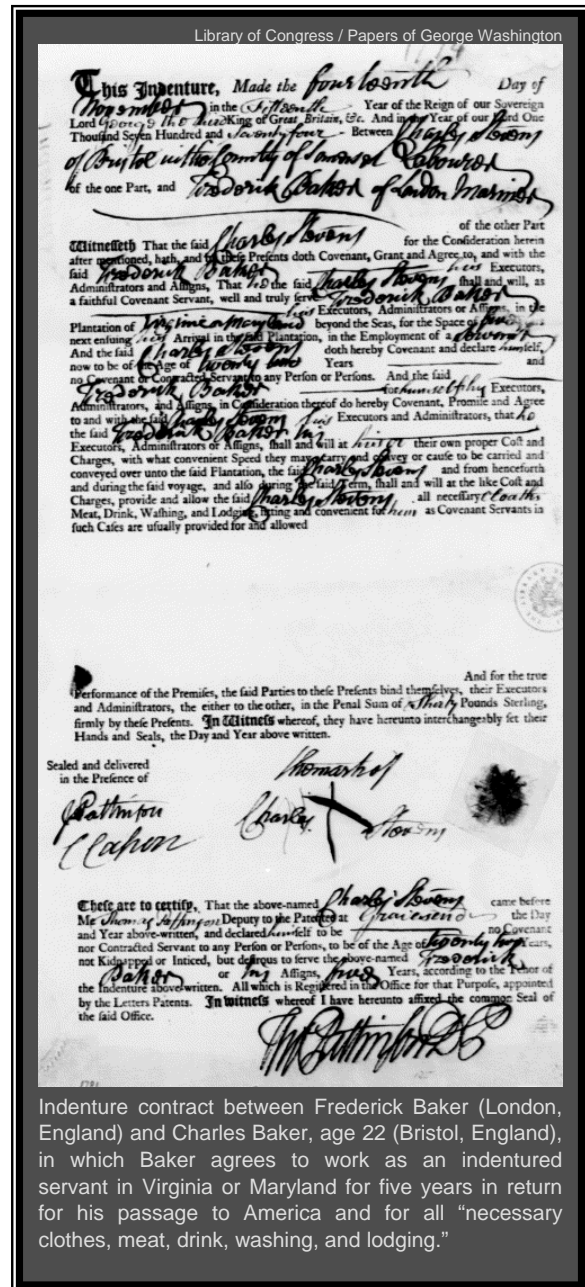 Library of Congress / Papers of George Washington
This Indenture, Made the fourteenth Day of
November in the Fifteenth Year of the Reign of our Sovereign
Lord George the third King of Great Britain, &c. And in the Year of our Lord One
Thousand Seven Hundred and Seventy four Between Charles Stevens
of Bristol in the County of Somerset Labourer
of the one Part, and Frederick Baker of London Mariner
of the other Part
Witnesseth That the said Charles Stevens for the Consideration herein
after mentioned, hath, and by these Presents doth Covenant, Grant and Agree to, and with the
said Frederick Baker his Executors,
Administrators and Assigns, That he the said Charles Stevens shall and will, as
a faithful Covenant Servant, well and truly serve Frederick Baker
his Executors, Administrators or Assigns, in the
Plantation of Virginia or Maryland beyond the Seas, for the Space of five
next ensuing his Arrival in the said Plantation, in the Employment of a Servant
And the said Charles Stevens doth hereby Covenant and declare himself,
now to be of the Age of Twenty two Years and
no Covenant or Contracted Servant to any Person or Persons. And the said
Frederick Baker for himself his Executors,
Administrators, and Assigns, in Consideration thereof do hereby Covenant, Promise and Agree
to and with the said Charles Stevens his Executors and Administrators, that he
the said Frederick Baker his
Executors, Administrators or Assigns, shall and will at his or their own proper Cost and
Charges, with what convenient Speed they may, carry and convey or cause to be carried and
conveyed over unto the said Plantation, the said Charles Stevens and from henceforth
and during the said voyage, and also during the said Term, shall and will at the like Cost and
Charges, provide and allow the said Charles Stevens all necessary Cloaths
Meat, Drink, Washing, and Lodging, fitting and convenient for him as Covenant Servants in
such Cases are usually provided for and allowed
And for the true
Performance of the Premises, the said Parties to these Presents bind themselves, their Executors
and Administrators, the either to the other, in the Penal Sum of Thirty Pounds Sterling,
firmly by these Presents. In Witness whereof, they have hereunto interchangeably set their
Hands and Seals, the Day and Year above written.
Sealed and delivered
in the Presence of
the mark of
Charles Stevens
These are to certify, That the above-named Charles Stevens came before
Me Thomas Deputy to the Patentee at Gravesend the Day
and Year above-written, and declared himself to be no Covenant
nor Contracted Servant to any Person or Persons, to be of the Age of twenty two Years,
not Kidnapped or Inticed, but desirous to serve the above-named Frederick
Baker or his Assigns, five Years, according to the Tenor of
the Indenture above-written. All which is Registered in the Office for that Purpose, appointed
by the Letters Patents. In witness whereof I have hereunto affixed the common Seal of
the said Office.
Indenture contract between Frederick Baker (London,
England) and Charles Baker, age 22 (Bristol, England),
in which Baker agrees to work as an indentured
servant in Virginia or Maryland for five years in return
for his passage to America and for all “necessary
clothes, meat, drink, washing, and lodging.”